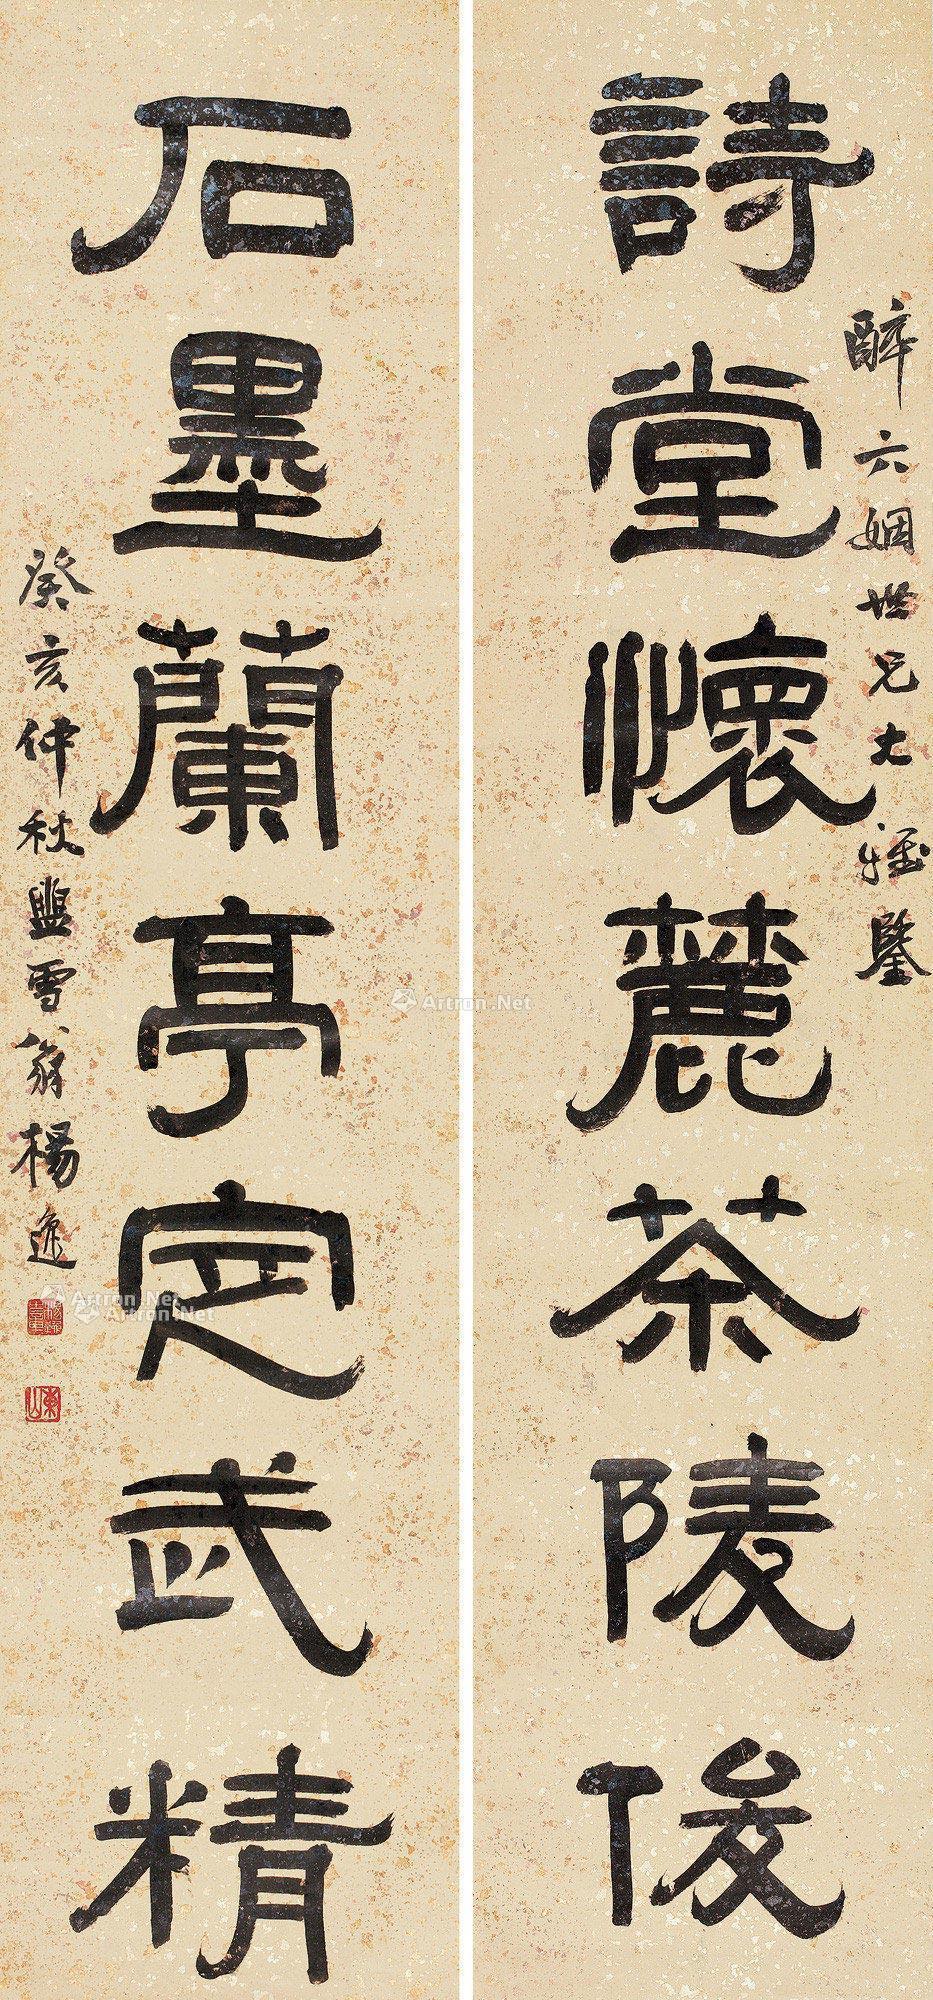 醉六姻世兄大雅鑒
詩堂懷麓茶陵俊
石墨蘭亭定武精
癸亥仲秋盥雪翁楊逸
東山
Artron.Net
Artron.Net
Artron.Net